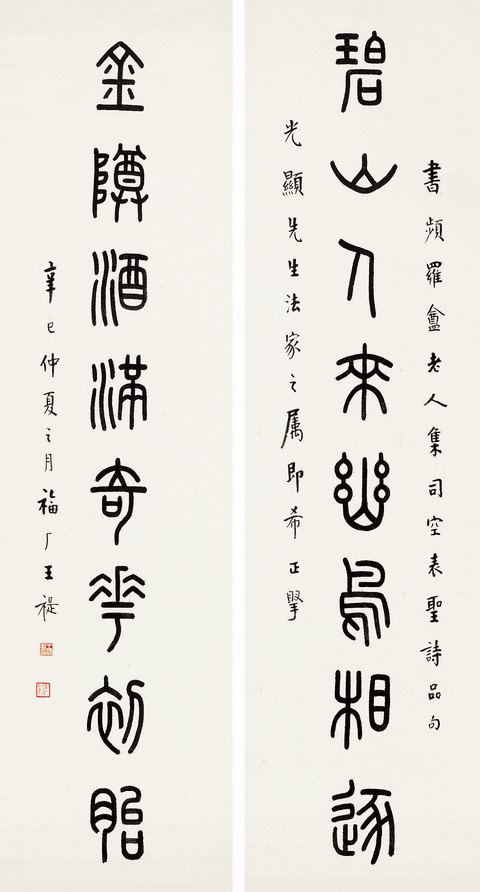 書頻羅盦老人集司空表聖詩品句
碧山人來幽鳥相逐
光顯先生法家之属即希正擘
金尊酒滿奇花初胎
辛巳仲夏之月福厂王禔